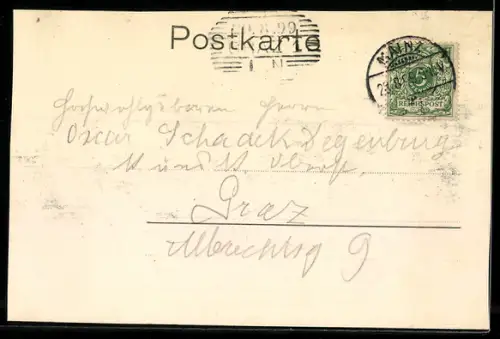 Postkarte
99
5
REICHSPOST
Hochwohlgeboren Herrn
Oscar Schadek Degenburg
K und K
Graz
Albrechtsg 9